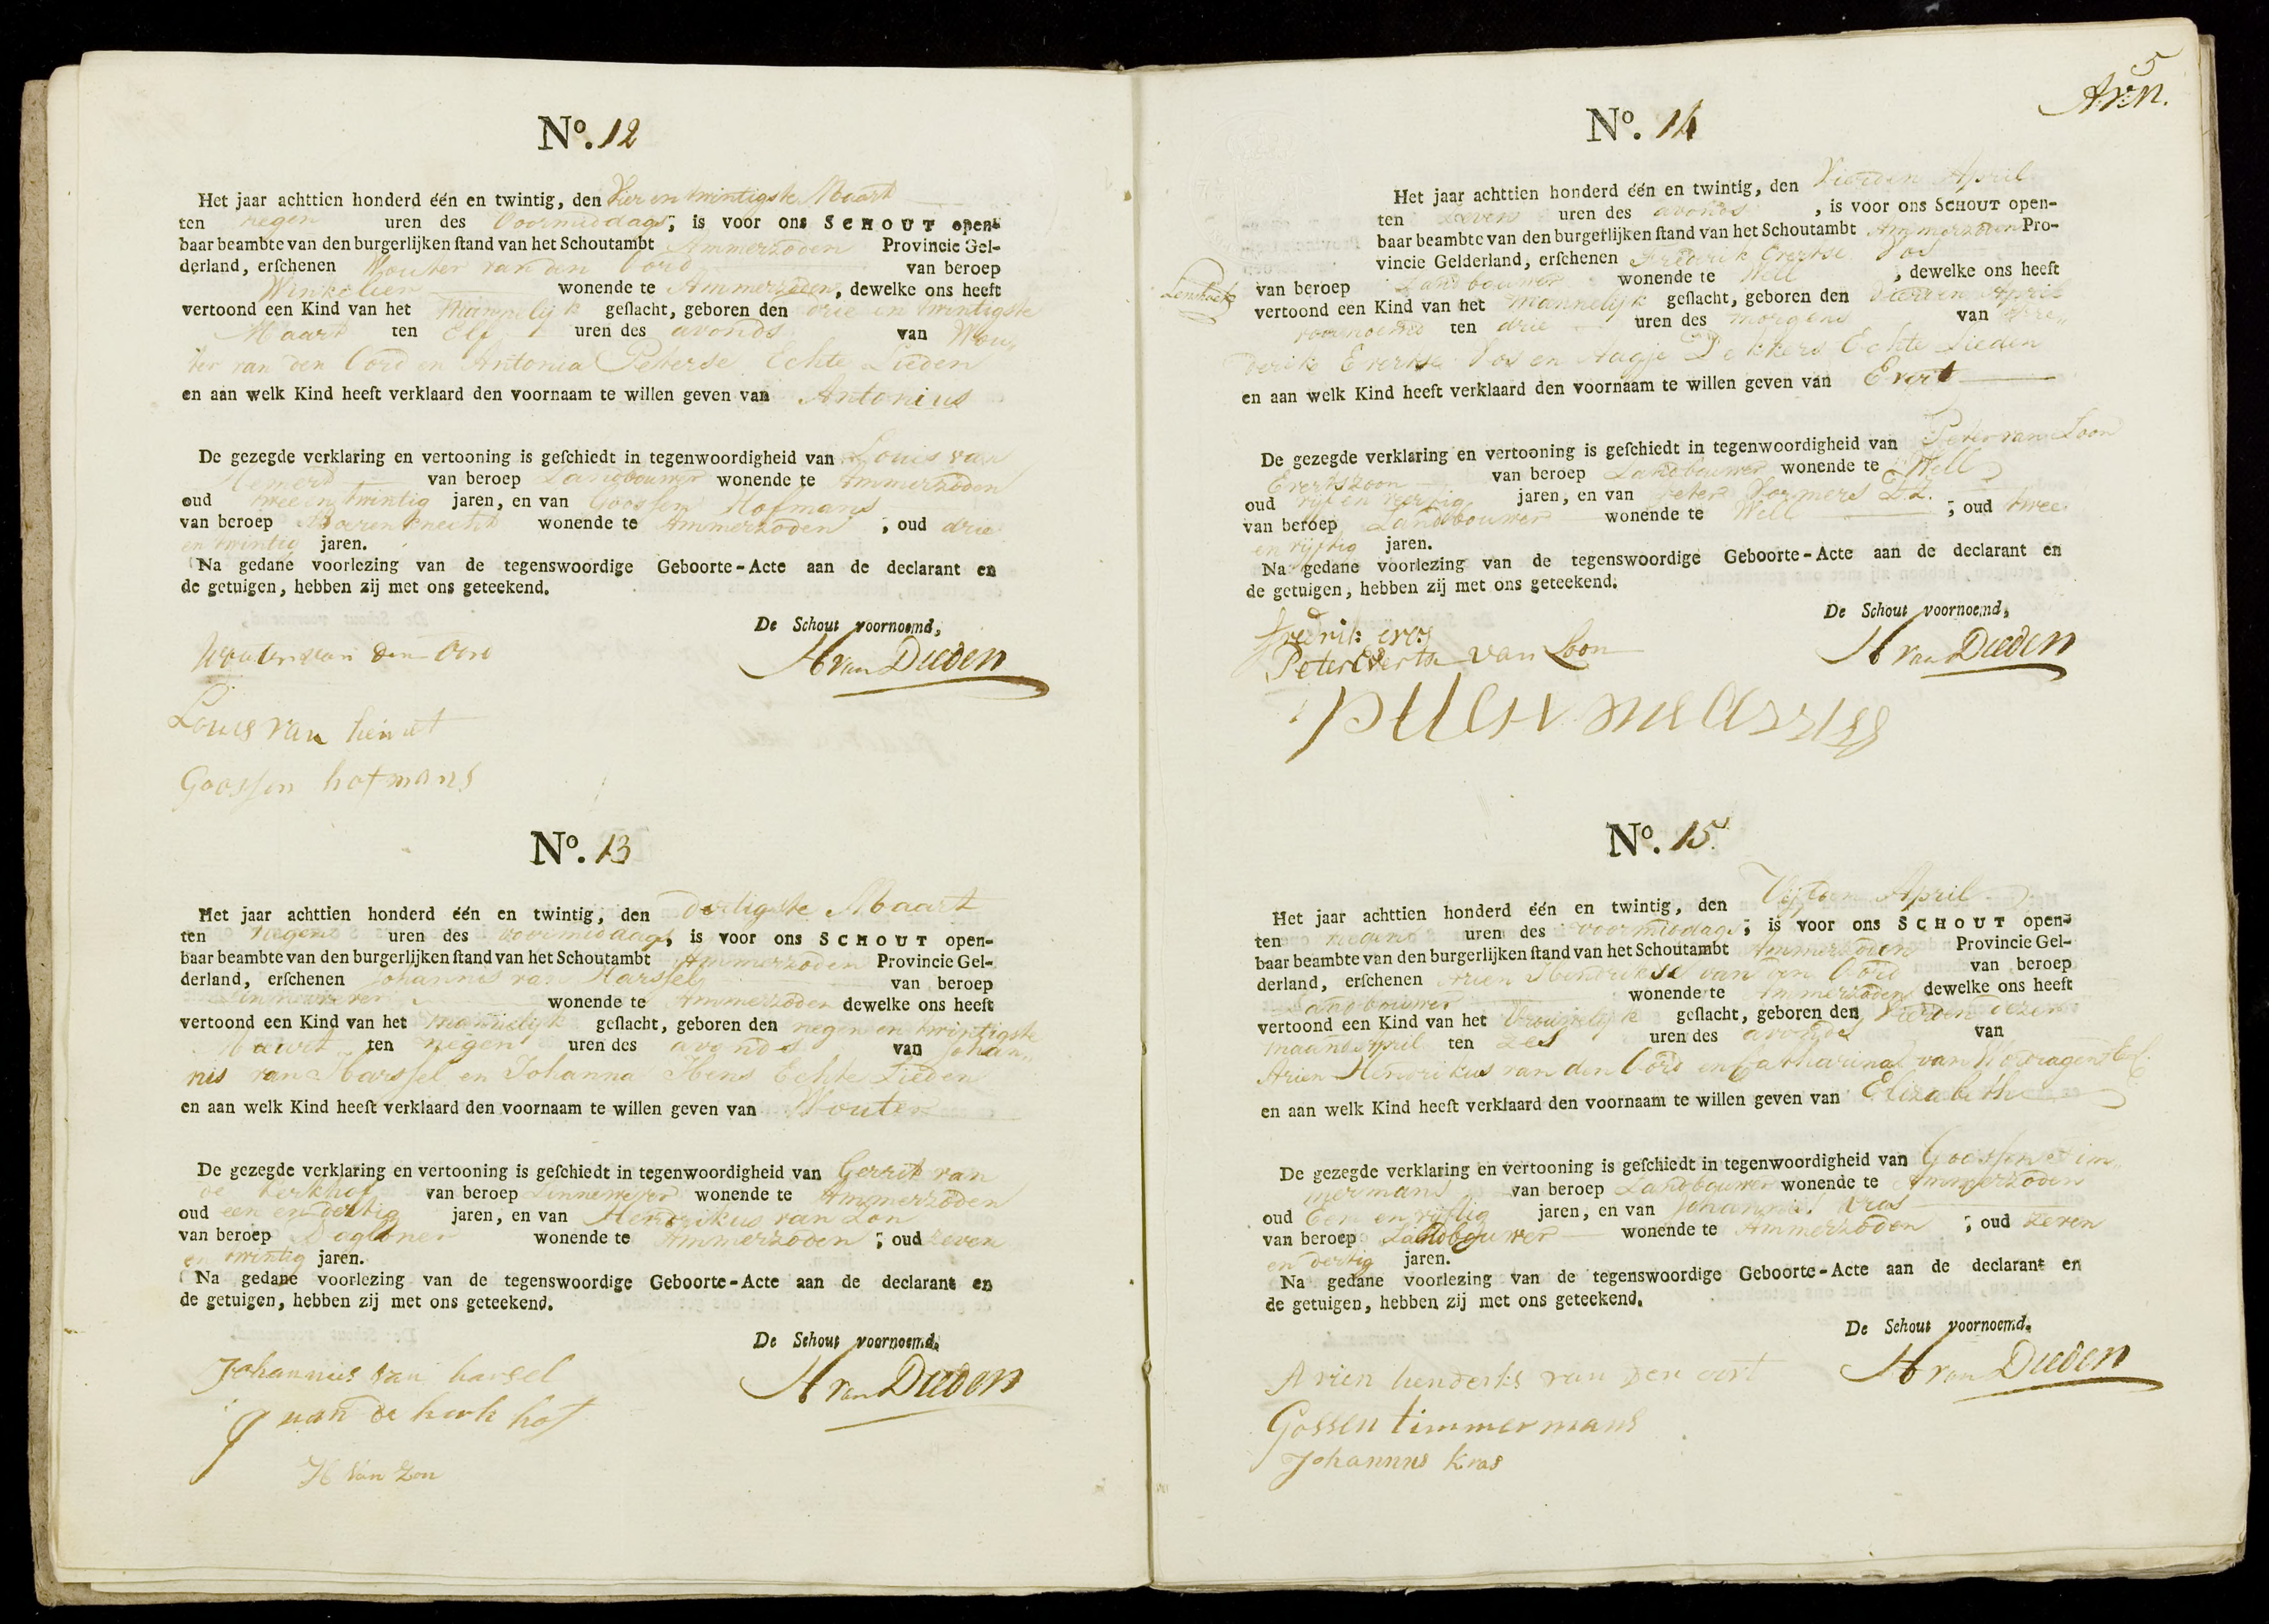 No. 12
Het jaar achttien honderd één en twintig, den Vier en twintigste Maart
ten negen uren des Voormiddags, is voor ons SCHOUT open-
baar beambte van den burgerlijken ſtand van het Schoutambt Ammerzoden Provincie Gel-
derland, erſchenen Wouter van den Oord van beroep
Winkelier wonende te Ammerzoden, dewelke ons heeft
vertoond een Kind van het Mannelijk geſlacht, geboren den drie en twintigste
Maart ten Elf uren des avonds van Wou-
ter van den Oord en Antonia Peterse Echte Lieden
en aan welk Kind heeft verklaard den voornaam te willen geven van Antonius
De gezegde verklaring en vertooning is geſchiedt in tegenwoordigheid van Louis van
Hemert van beroep Landbouwer wonende te Ammerzoden
oud twee en twintig jaren, en van Goossen Hofmans
van beroep Boerenknecht wonende te Ammerzoden, oud drie
en twintig jaren.
Na gedane voorlezing van de tegenswoordige Geboorte-Acte aan de declarant en
de getuigen, hebben zij met ons geteekend.
De Schout voornoemd,
Wouter van den Oord H van Dieden
Louis van hemert
Goossen hofmans
No. 13
Het jaar achttien honderd één en twintig, den dertigste Maart
ten negen uren des voormiddags, is voor ons SCHOUT open-
baar beambte van den burgerlijken ſtand van het Schoutambt Ammerzoden Provincie Gel-
derland, erſchenen Johannis van Harssel van beroep
Linnewever wonende te Ammerzoden dewelke ons heeft
vertoond een Kind van het Mannelijk geſlacht, geboren den negen en twintigste
Maart ten negen uren des avonds van Johan-
nis van Harssel en Johanna Hens Echte Lieden
en aan welk Kind heeft verklaard den voornaam te willen geven van Wouter
De gezegde verklaring en vertooning is geſchiedt in tegenwoordigheid van Gerrit van
de Kerkhof van beroep Linnewever wonende te Ammerzoden
oud een en dertig jaren, en van Hendrikus van Zon
van beroep Dagloner wonende te Ammerzoden, oud zeven
en twintig jaren.
Na gedane voorlezing van de tegenswoordige Geboorte-Acte aan de declarant en
de getuigen, hebben zij met ons geteekend.
De Schout voornoemd,
Johannis van harsel H van Dieden
G van de kerk hof
H van Zon
5
No. 14
Het jaar achttien honderd één en twintig, den Vierden April
ten zeven uren des avonds, is voor ons SCHOUT open-
baar beambte van den burgerlijken ſtand van het Schoutambt Ammerzoden Pro-
vincie Gelderland, erſchenen Frederik Evertse Vos
van beroep Landbouwer wonende te Well, dewelke ons heeft
vertoond een Kind van het Mannelijk geſlacht, geboren den Vierden April
voornoemd ten drie uren des morgens van Fre-
derik Evertse Vos en Aagje Dekkers Echte Lieden
en aan welk Kind heeft verklaard den voornaam te willen geven van Evert
De gezegde verklaring en vertooning is geſchiedt in tegenwoordigheid van Peter van Loon
Evertszoon van beroep Landbouwer wonende te Well
oud vijf en veertig jaren, en van Peter
van beroep Landbouwer wonende te Well, oud twee
en vijftig jaren.
Na gedane voorlezing van de tegenswoordige Geboorte-Acte aan de declarant en
de getuigen, hebben zij met ons geteekend.
De Schout voornoemd,
Fredrik H van Dieden
Peter Everts van Loon
No. 15
Het jaar achttien honderd één en twintig, den Vijfden April
ten negen uren des voormiddags, is voor ons SCHOUT open-
baar beambte van den burgerlijken ſtand van het Schoutambt Ammerzoden Provincie Gel-
derland, erſchenen Arien Hendrikse van den Oord van beroep
Landbouwer wonende te Ammerzoden dewelke ons heeft
vertoond een Kind van het Vrouwelijk geſlacht, geboren den Vierden dezer
maand April ten zes uren des avonds van
Arien Hendrikus van den Oord en Catharina van
en aan welk Kind heeft verklaard den voornaam te willen geven van Elizabeth
De gezegde verklaring en vertooning is geſchiedt in tegenwoordigheid van Goossen Tim-
mermans van beroep Landbouwer wonende te Ammerzoden
oud Een en vijftig jaren, en van Johannis Kras
van beroep Landbouwer wonende te Ammerzoden, oud zeven
en dertig jaren.
Na gedane voorlezing van de tegenswoordige Geboorte-Acte aan de declarant en
de getuigen, hebben zij met ons geteekend.
De Schout voornoemd,
Arien henderks van den oort H van Dieden
Gossen timmermans
Johannus Kras